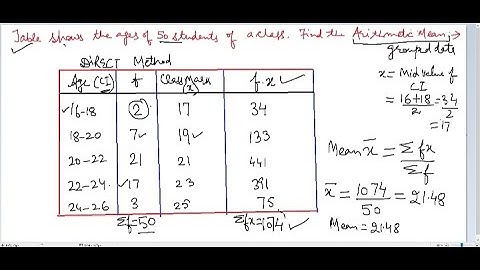 Table shows the ages of 50 students of a class. Find the Arithmetic Mean →
grouped data
DIRECT Method
Age (CI) f Class Mark (x) f.x ✓
✓16-18 2 17 34
18-20 7✓ 19✓ 133
20-22 21 21 441
22-24 ✓17 23 391
24-26 3 25 75
Σf=50 Σfx=1074
x = Mid value of
CI
= 16+18/2 = 34/2
= 17
Mean x̄ = Σfx/Σf
x̄ = 1074/50 = 21.48
Mean = 21.48